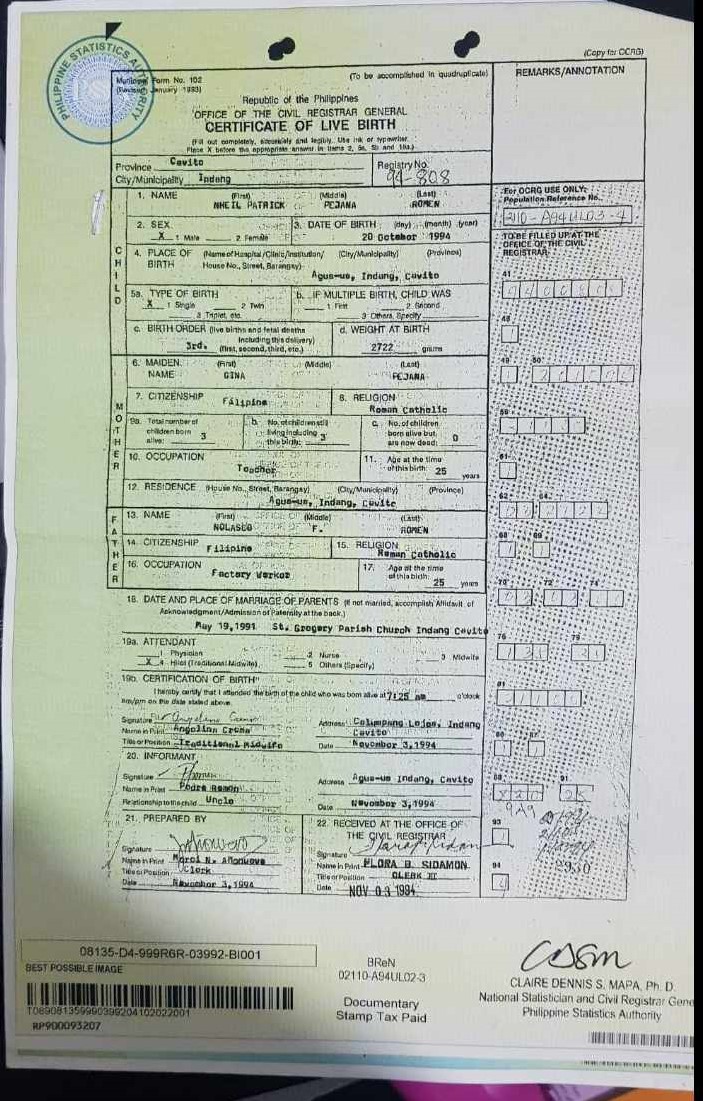 (Copy for OCRG)
PHILIPPINE STATISTICS AUTHORITY
Municipal Form No. 102
(To be accomplished in quadruplicate)
REMARKS/ANNOTATION
(Revised January 1993)
Republic of the Philippines
OFFICE OF THE CIVIL REGISTRAR GENERAL
CERTIFICATE OF LIVE BIRTH
(Fill out completely, accurately and legibly. Use ink or typewriter.
Place X before the appropriate answer in items 2, 5a, 5b and 19a.)
Province Cavite
Registry No.
City/Municipality Indang
94-808
For OCRG USE ONLY:
Population Reference No.
1. NAME (First) (Middle) (Last)
NHEIL PATRICK PEJANA ROMEN
2. SEX
X 1 Male 2 Female
3. DATE OF BIRTH (day) (month) (year)
20 October 1994
TO BE FILLED UP AT THE
OFFICE OF THE CIVIL
REGISTRAR
CHILD
4. PLACE OF BIRTH (Name of Hospital/Clinic/Institution/ (City/Municipality) (Province)
House No., Street, Barangay)
Agus-us, Indang, Cavite
41
5a. TYPE OF BIRTH
X 1 Single 2 Twin
3 Triplet, etc.
b. IF MULTIPLE BIRTH, CHILD WAS
1 First 2 Second
3 Others, Specify
c. BIRTH ORDER (live births and fetal deaths
including this delivery)
3rd. (first, second, third, etc.)
d. WEIGHT AT BIRTH
2722 grams
48
49 50
MOTHER
6. MAIDEN NAME (First) (Middle) (Last)
GINA PEJANA
7. CITIZENSHIP Filipino
8. RELIGION
Roman Catholic
9a. Total number of
children born
alive: 3
b. No. of children still
living including
this birth: 3
c. No. of children
born alive but
are now dead: 0
56
10. OCCUPATION
Teacher
11. Age at the time
of this birth: 25 years
61
12. RESIDENCE (House No., Street, Barangay) (City/Municipality) (Province)
Agus-us, Indang, Cavite
62 64
FATHER
13. NAME (First) (Middle) (Last)
NOLASCO F. ROMEN
14. CITIZENSHIP Filipino
15. RELIGION
Roman Catholic
68 69
16. OCCUPATION
Factory Worker
17. Age at the time
of this birth: 25 years
70 72 74
18. DATE AND PLACE OF MARRIAGE OF PARENTS (If not married, accomplish Affidavit of
Acknowledgment/Admission of Paternity at the back.)
May 19,1991 St. Gregory Parish Church Indang Cavite
76 79
19a. ATTENDANT
1 Physician 2 Nurse 3 Midwife
X 4 Hilot (Traditional Midwife) 5 Others (Specify)
19b. CERTIFICATION OF BIRTH
I hereby certify that I attended the birth of the child who was born alive at 7:25 am o'clock
am/pm on the date stated above.
81
Signature
Name in Print
Title or Position Traditional Midwife
Address Indang
Cavite
Date November 3,1994
86 87
20. INFORMANT
Signature
Name in Print Pedro Romen
Relationship to the child Uncle
Address Agus-us Indang, Cavite
Date November 3,1994
88 91
21. PREPARED BY
Signature
Name in Print
Title or Position Clerk
Date November 3,1994
22. RECEIVED AT THE OFFICE OF
THE CIVIL REGISTRAR
Signature
Name in Print FLORA B. SIDAMON
Title or Position CLERK III
Date NOV 03 1994
93
94
08135-D4-999R6R-03992-BI001
BEST POSSIBLE IMAGE
BReN
02110-A94UL02-3
Documentary
Stamp Tax Paid
CLAIRE DENNIS S. MAPA, Ph. D.
National Statistician and Civil Registrar Gene
Philippine Statistics Authority
RP900093207